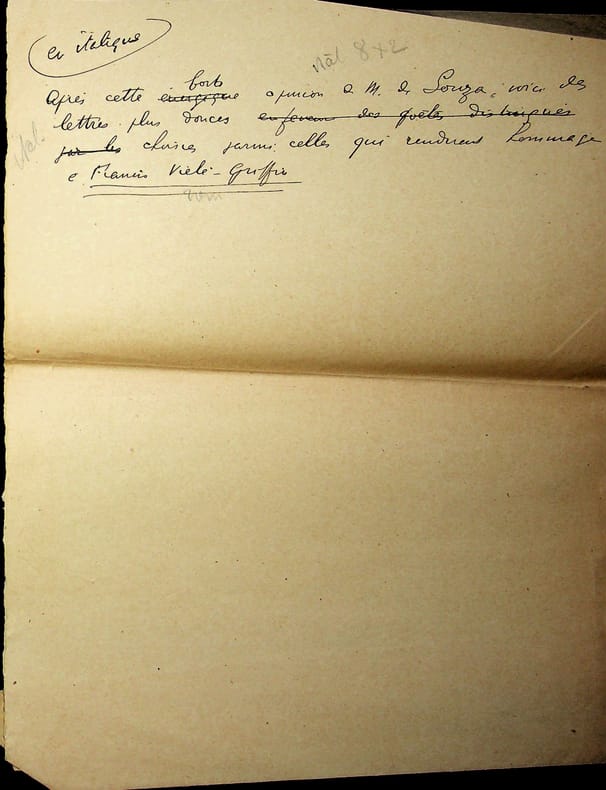 en italique
ital 8 x 2
forte
Après cette énergique opinion de M. de Souza, voici des
lettres plus douces en faveur des poètes distingués
par les choisies parmi celles qui rendirent hommage
à Francis Vielé-Griffin
rom
ital.